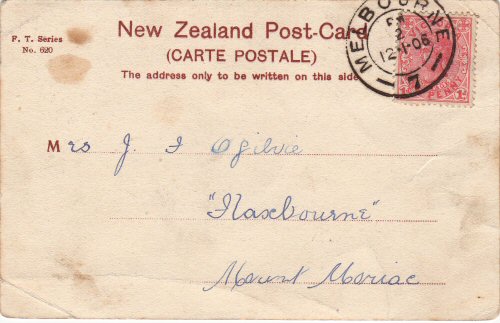 F. T. Series
No. 620
New Zealand Post-Card
(CARTE POSTALE)
The address only to be written on this side
MELBOURNE
12·1·06
7
PENNY
Mrs J. I Ogilvie
"Flaxbourne"
Mount Moriac